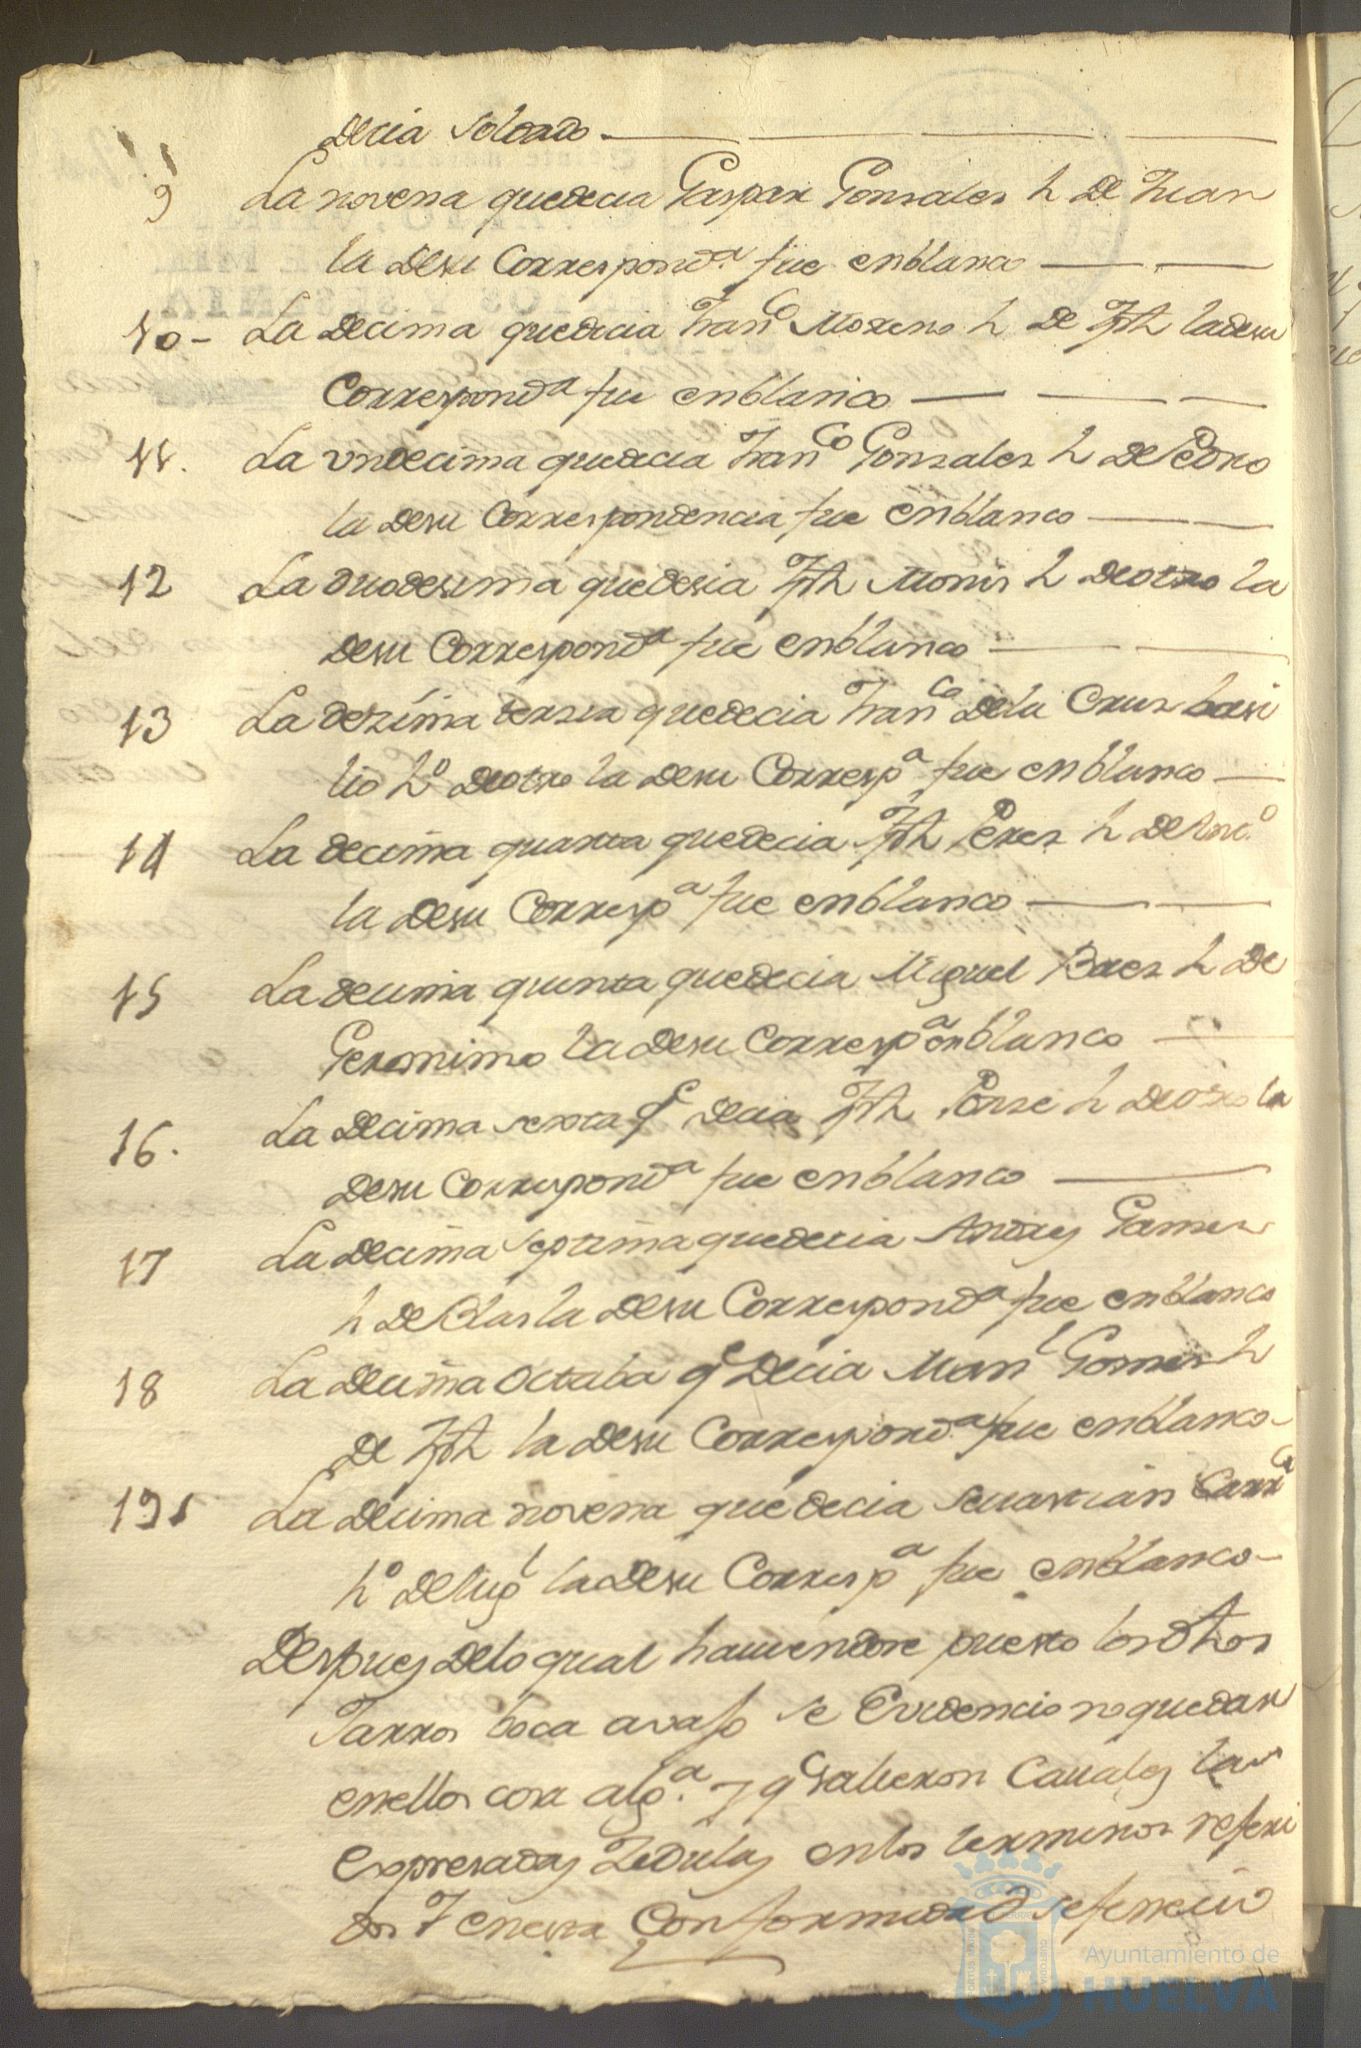 decia soldado
9 La novena quedecia Gaspar Gonsales h de Juan
la desu Correspond.ª fue enblanco
10 - La decima quedecia Fran.co Moreno h de Jph ladesu
Correspondª fue enblanco
11. La undecima quedecia Fran.co Gonsales h de Pedro
la desu Correspondencia fue enblanco
12 La duodesima quedesia Jph Monis h deotro la
desu Correspondª fue enblanco
13 La dezima tersera quedecia Fran.co dela Crus basi
lio hº deotro la desu Correspª fue enblanco
14 La decima quarta quedecia Jph Peres h de
la desu Correspª fue enblanco
15 La decima quinta quedecia Miguel Baes h de
Geronimo la desu Correspª enblanco
16. La decima sexta qe decia Jph Ponse h deotro la
desu Correspondª fue enblanco
17 La decima septima quedecia Andres
h de Blas la desu Correspondª fue enblanco
18 La decima octaba qe decia Manl Gomes h
de Jph la desu Correspondª fue enblanco
19 La decima novena quedecia Seuastian
hº la desu Correspª fue enblanco
Despues delo qual hauiendose puesto los dhos
Jarros boca avajo se evidencio no quedar
enellos cosa algª. y qe salieron Cauales las
expresadas zedulas enlos terminos referi
dos Y enesta Conformidad sefenecio
Ayuntamiento de
HUELVA